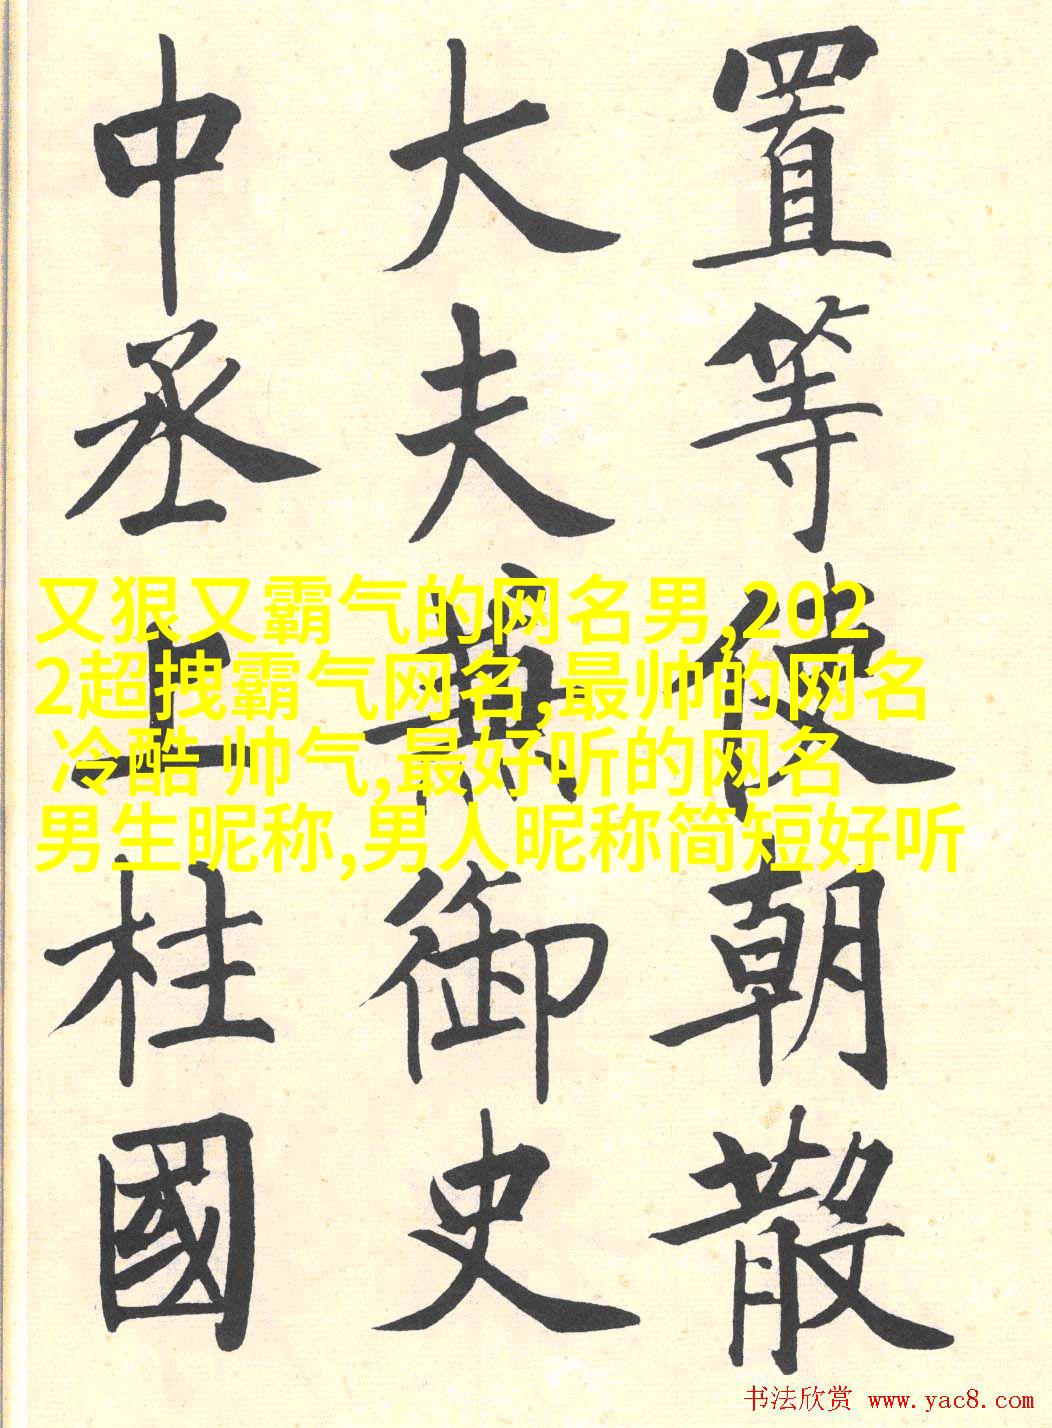 置等使朝散
大夫兼御史
中丞上柱國
又狠又霸气的网名男,202
2超拽霸气网名,最帅的网名
冷酷 帅气,最好听的网名
男生昵称,男人昵称简短好听
书法欣赏 www.yac8.com